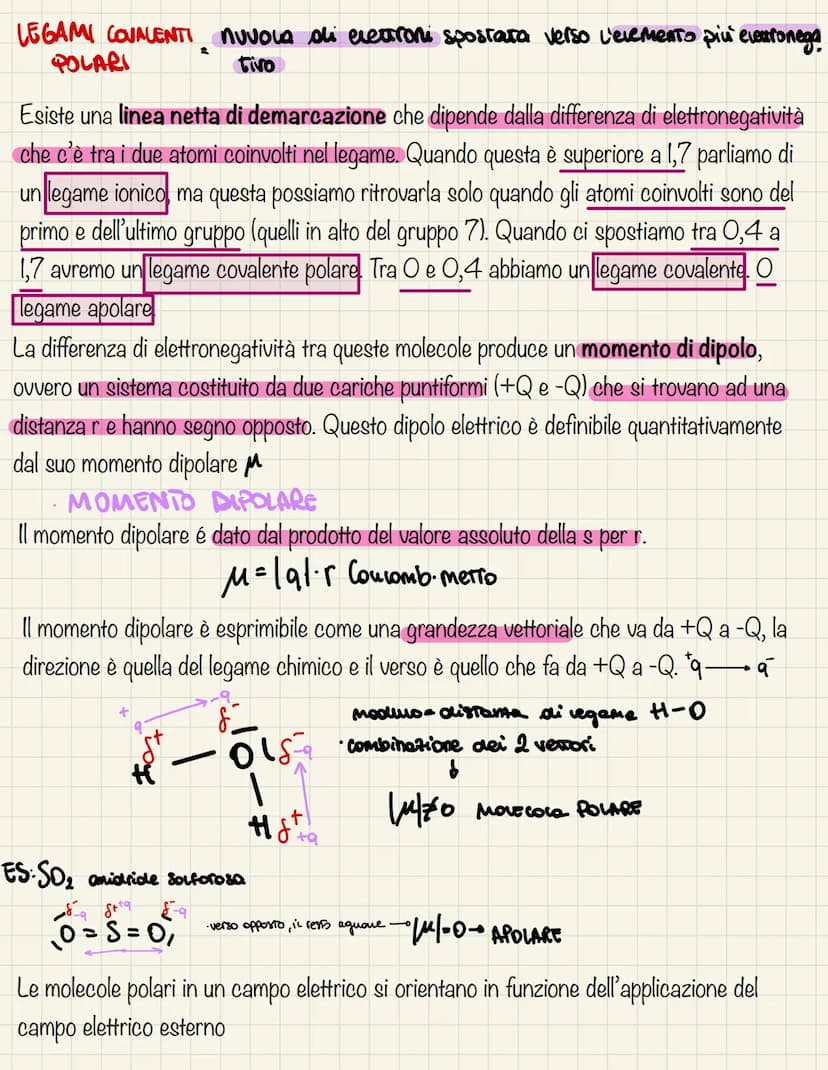 LEGAMI COVALENTI : nuvola di elettroni spostata verso l'elemento più elettronega
POLARI tivo
Esiste una linea netta di demarcazione che dipende dalla differenza di elettronegatività
che c'è tra i due atomi coinvolti nel legame. Quando questa è superiore a 1,7 parliamo di
un legame ionico, ma questa possiamo ritrovarla solo quando gli atomi coinvolti sono del
primo e dell'ultimo gruppo (quelli in alto del gruppo 7). Quando ci spostiamo tra 0,4 a
1,7 avremo un legame covalente polare. Tra 0 e 0,4 abbiamo un legame covalente. O
legame apolare
La differenza di elettronegatività tra queste molecole produce un momento di dipolo,
ovvero un sistema costituito da due cariche puntiformi (+Q e -Q) che si trovano ad una
distanza r e hanno segno opposto. Questo dipolo elettrico è definibile quantitativamente
dal suo momento dipolare μ
· MOMENTO DIPOLARE
Il momento dipolare é dato dal prodotto del valore assoluto della s per r.
μ=|q|·r Coulomb·metro
Il momento dipolare è esprimibile come una grandezza vettoriale che va da +Q a -Q, la
direzione è quella del legame chimico e il verso è quello che fa da +Q a -Q. +q → q-
+q -q
δ- modulo= distanza di legame H-O
δ+ H — O| δ- -q · combinazione dei 2 vettori
↓
|μ|≠0 MOLECOLA POLARE
H δ+ +q
ES: SO2 anidride solforosa
δ- -q δ+ +q δ- -q
O = S = O ·verso opposto, → |μ|=0→ APOLARE
Le molecole polari in un campo elettrico si orientano in funzione dell'applicazione del
campo elettrico esterno